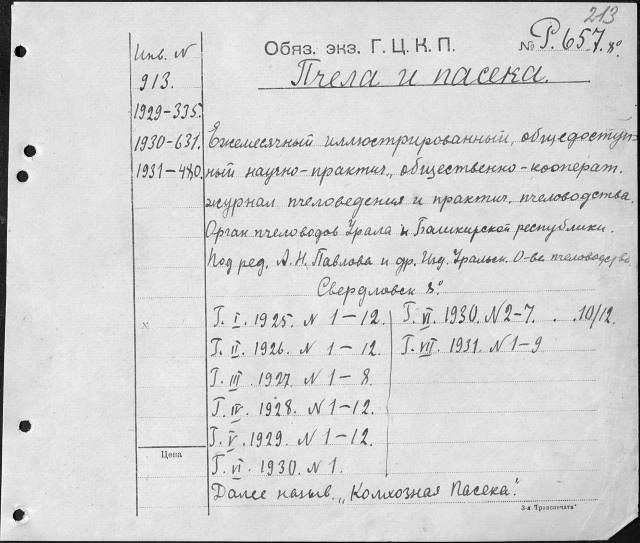 213
Обяз. экз. Г. Ц. К. П. № Р.657. 8°
Пчела и пасека.
Инв. N
913.
1929-335.
1930-631.
1931-480.
Ежемесячный иллюстрированный, общедоступ-
ный научно-практич., общественно-кооперат.
журнал пчеловедения и практич. пчеловодства.
Орган пчеловодов Урала и Башкирской республики.
Под ред. А. Н. Павлова и др. Изд. Уральск. О-ва пчеловодство
Свердловск 8°.
Г. I. 1925. N 1-12.
Г. II. 1926. N 1-12.
Г. III. 1927. N 1-8.
Г. IV. 1928. N 1-12.
Г. V. 1929. N 1-12.
Г. VI. 1930. N 1.
Г. VI. 1930. N 2-7. . . 10/12.
Г. VII. 1931. N 1-9
Цена
Далее назыв. „Колхозная Пасека".
3-я „Транспечать"